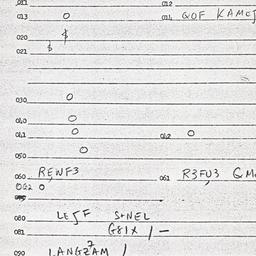 011 012
013 O 014 QOF KAMOF
020 $
021 $
030 O
040 O
041 O 042 O
050 O
060 REWF3 061 R3FU3 GM
062 O
080 LESF S+NEL
081 G81X / -
090 LANGZAM /